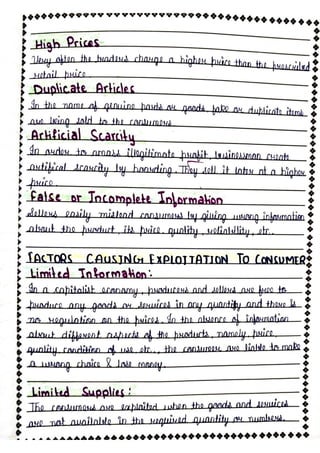 High Prices
Very often the traders charge a higher price than the prescribed
retail price.
Duplicate Articles
In the name of genuine parts or goods, fake or duplicate items
are being sold to the consumers
Artificial Scarcity
In order to amass illegitimate profit, businessman create
artifical scarcity by hoarding. They sell it later at a higher
price.
False or Incomplete Information
Sellers easily mislead consumers by giving wrong information
about the product, its price, quality, reliability, etc.
FACTORS CAUSING EXPLOITATION TO CONSUMER
Limited Information:
In a capitalist economy, producers and sellers are free to
produce any goods or services in any quantity and there is
no regulation on the prices. In the absence of information
about different aspects of the products, namely price,
quality condition of use etc., the consumers are liable to make
a wrong choice & lose money.
Limited Supplies:
The consumers are exploited when the goods and services
are not available in the required quantity or numbers.